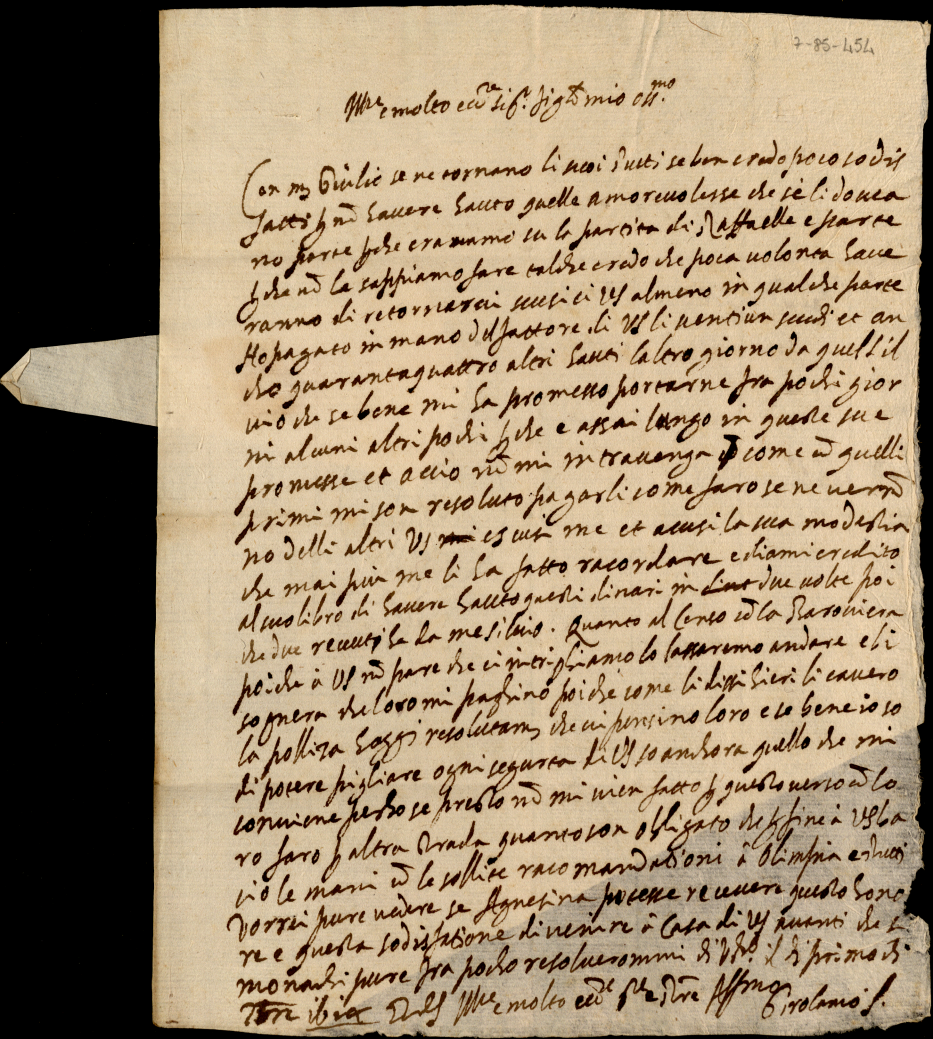 7-85-454
Ill.re e molto ecc.te sig.r sig.r mio oss.mo
Con m Giulio se ne tornano li suoi Putti se ben credo poco sodis
fatti p nō havere hauto quelle amorevolesse che se li dovea
no parte pche eravamo su la partita di Raffaelle e parte
pche nō la sappiamo fare talche credo che poca volonta have
ranno di retornarci scusici VS almeno in qualche parte
Ho pagato in mano del fattore di VS li ventiun scudi et an
cho quarantaquattro altri hauti laltro giorno da quel sil
vio che se bene mi ha promesso portarne fra pochi gior
ni alcuni altri pochi pche e assai lungo in queste sue
promesse et accio nō mi intravenga come cō quelli
primi mi son resoluto pagarli come faro se ne verrā
no delli altri VS escusi me et acusi la sua modestia
che mai piu me li ha fatto racordare e diami credito
al suo libro di havere hauto questi dinari in due volte poi
che due receuti le da me silvio. Quanto al Censo cō la Baroniera
poiche à VS nō pare che ci intrighiamo lo lassaremo andare e bi
sognera che loro mi paghino poiche come li dissi hieri li cavero
la polliza hoggi resolutam che ci pensino loro e se bene io so
di potere pigliare ogni segurta di VS so anchora quello che mi
conviene perho se presto nō mi vien fatto p questo verso cō lo
ro faro p altra strada quanto son obligato che p fine à VS ba
cio le mani cō le sollite racomandationi à Olimpia e tutti
Vorrei pure vedere se Agnesina potesse recevere questo hono
re e questa sodisfatione di venire à Casa di VS avanti che si
monachi pure fra pocho resolverommi di il di primo di
Di VS Ill.re e molto ecc.te
Girolamo f.